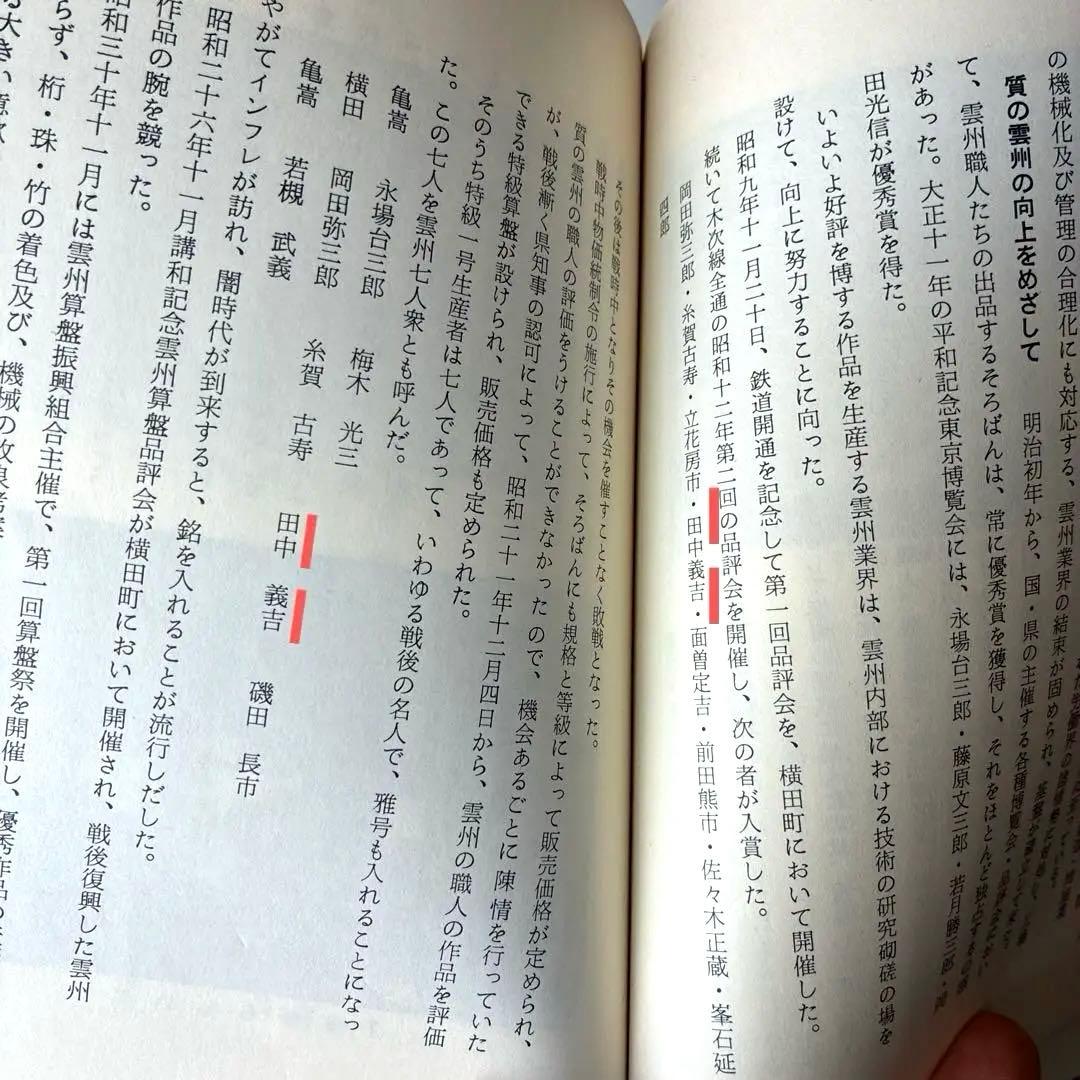 の機械化及び管理の合理化にも対応する、雲州業界の結束が固められ、
質の雲州の向上をめざして　明治初年から、国・県の主催する各種博覧会・品評会において
て、雲州職人たちの出品するそろばんは、常に優秀賞を獲得し、それをほとんど独占するの
があった。大正十一年の平和記念東京博覧会には、永場台三郎・藤原文三郎・若月勝三郎・
田光信が優秀賞を得た。
いよいよ好評を博する作品を生産する雲州業界は、雲州内部における技術の研究砌磋の場を
設けて、向上に努力することに向った。
昭和九年十一月二十日、鉄道開通を記念して第一回品評会を、横田町において開催した。
続いて木次線全通の昭和十二年第二回の品評会を開催し、次の者が入賞した。
岡田弥三郎・糸賀古寿・立花房市・田中義吉・面曽定吉・前田熊市・佐々木正蔵・峯石延
四郎
その後は戦時中となりその機会を催すことなく敗戦となった。
戦時中物価統制令の施行によって、そろばんにも規格と等級によって販売価格が定められ、
質の雲州の職人の評価をうけることができなかったので、機会あるごとに陳情を行っていた
が、戦後漸く県知事の認可によって、昭和二十一年十二月四日から、雲州の職人の作品を評価
できる特級算盤が設けられ、販売価格も定められた。
そのうち特級一号生産者は七人であって、いわゆる戦後の名人で、雅号も入れることになっ
た。この七人を雲州七人衆とも呼んだ。
亀嵩　永場台三郎　梅木　光三
横田　岡田弥三郎　糸賀　古寿
亀嵩　若槻　武義　田中　義吉　磯田　長市
やがてインフレが訪れ、闇時代が到来すると、銘を入れることが流行しだした。
昭和二十六年十一月講和記念雲州算盤品評会が横田町において開催され、戦後復興した雲州
作品の腕を競った。
昭和三十年十一月には雲州算盤振興組合主催で、第一回算盤祭を開催し、優秀作品の
らず、桁・珠・竹の着色及び、機械の改良考案